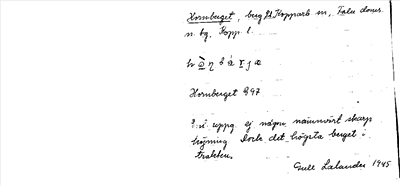 Hornberget, berg St Kopparb sn, Falu doms.
n. bg, Kopp l.
Hornberget 997
uppg. ej någon nämnvärt skarp
höjning Dock det högsta berget i
trakten.
Gull Lalander 1945